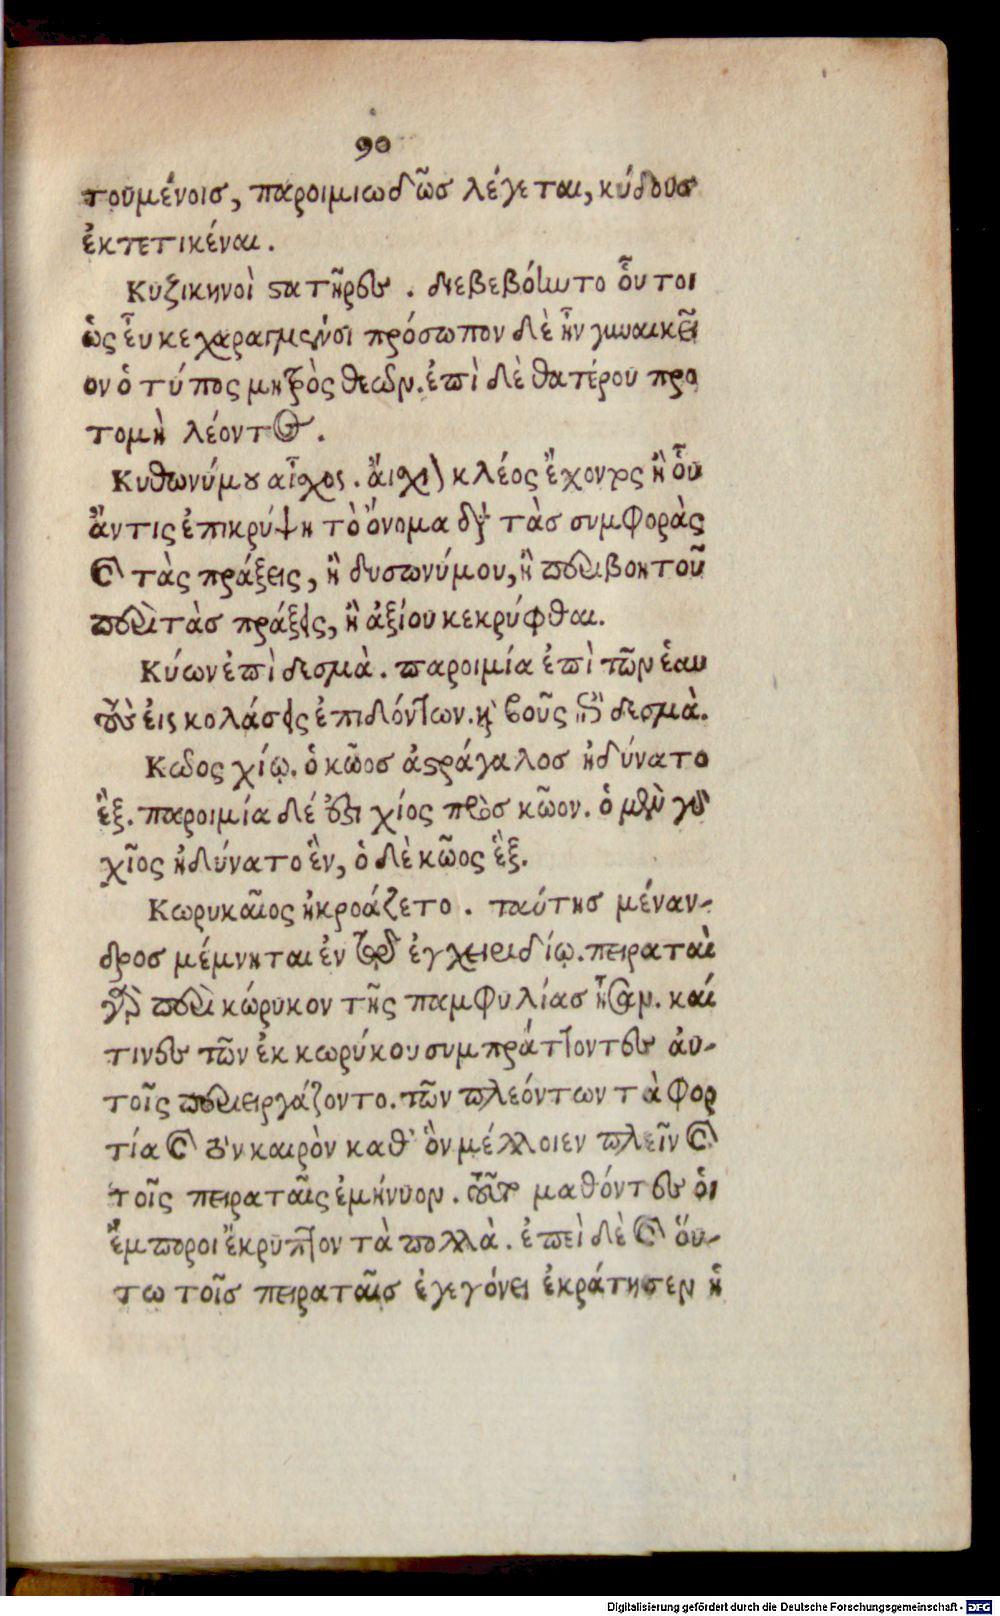 90
τουμένοισ, παροιμιωδῶσ λέγεται, κύδουσ
ἐκτετικέναι.
Κυζικηνοὶ ϛατῆρες. διεβεβόηντο οὗτοι
ὡς εὖ κεχαραγμένοι πρόσωπον δὲ ἦν γυναικεῖ
ον ὁ τύπος μητρὸς θεῶν. ἐπὶ δὲ θατέρου προ
τομὴ λέοντος.
Κυθωνύμου αἶχος. κλέος ἔχοντος ἢ οὗ
ἄν τις ἐπικρύψῃ τὸ ὄνομα διὰ τὰσ συμφορὰς
καὶ τὰς πράξεις, ἢ δυσωνύμου, ἢ περιβοητοῦ
περὶ τὰσ πράξεις, ἢ ἀξίου κεκρύφθαι.
Κύων ἐπὶ δεσμὰ. παροιμία ἐπὶ τῶν ἑαυ
τοὺς εἰς κολάσεις ἐπιδόντων. καὶ βοῦς ἐπὶ δεσμὰ.
Κῶος χίῳ. ὁ κῶοσ ἀϛράγαλοσ ἠδύνατο
ἓξ. παροιμία δέ ἐστι χίος πρὸσ κῶον. ὁ μὲν γὰρ
χῖος ἠδύνατο ἓν, ὁ δὲ κῶος ἓξ.
Κωρυκαῖος ἠκροάζετο. ταύτησ μέναν-
δροσ μέμνηται ἐν τῷ ἐγχειριδίῳ. πειραταὶ
γὰρ περὶ κώρυκον τῆς παμφυλίασ ἦσαν. καί
τινες τῶν ἐκ κωρύκου συμπράττοντες ἀυ-
τοῖς περιειργάζοντο. τῶν πλεόντων τὰ φορ
τία καὶ τὸν καιρὸν καθ' ὃν μέλλοιεν πλεῖν καὶ
τοῖς πειραταῖς ἐμήνυον. τοῦτο μαθόντες ὁι
ἔμποροι ἔκρυπτον τὰ πολλὰ. ἐπεὶ δὲ καὶ ὅυ-
τω τοῖσ πειραταῖσ ἐγεγόνει ἐκράτησεν ἡ
Digitalisierung gefördert durch die Deutsche Forschungsgemeinschaft - DFG